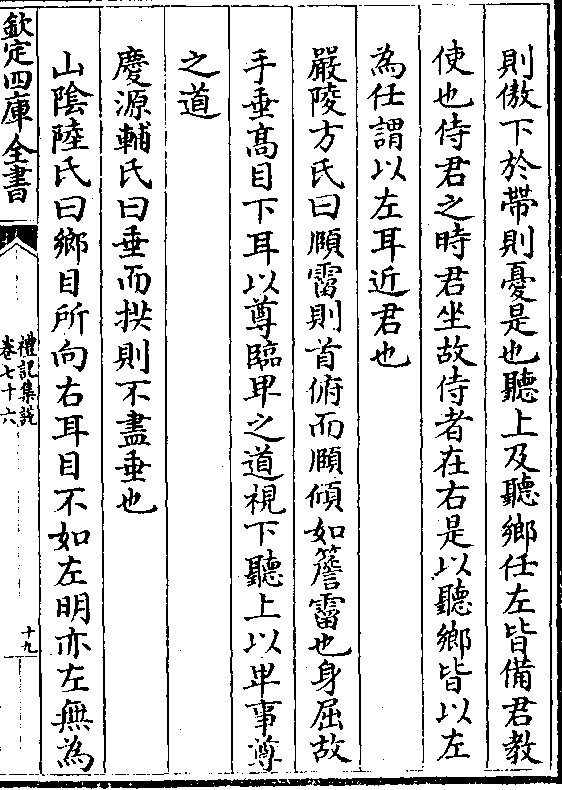 則傲下於帶則憂是也聽上及聽鄉任左皆備君教
使也侍君之時君坐故侍者在右是以聽鄉皆以左
為任謂以左耳近君也
嚴陵方氏曰頤霤則首俯而頤傾如簷霤也身屈故
手垂高目下耳以尊臨卑之道視下聽上以卑事尊
之道
慶源輔氏曰垂而拱則不盡垂也
山陰陸氏曰鄉目所向右耳目不如左明亦左無為
欽定四庫全書
禮記集説
卷七十六
十九